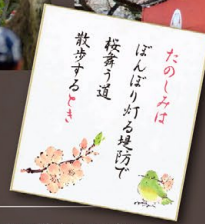 たのしみは
ぼんぼり灯る堤防で
桜舞う道
散歩するとき